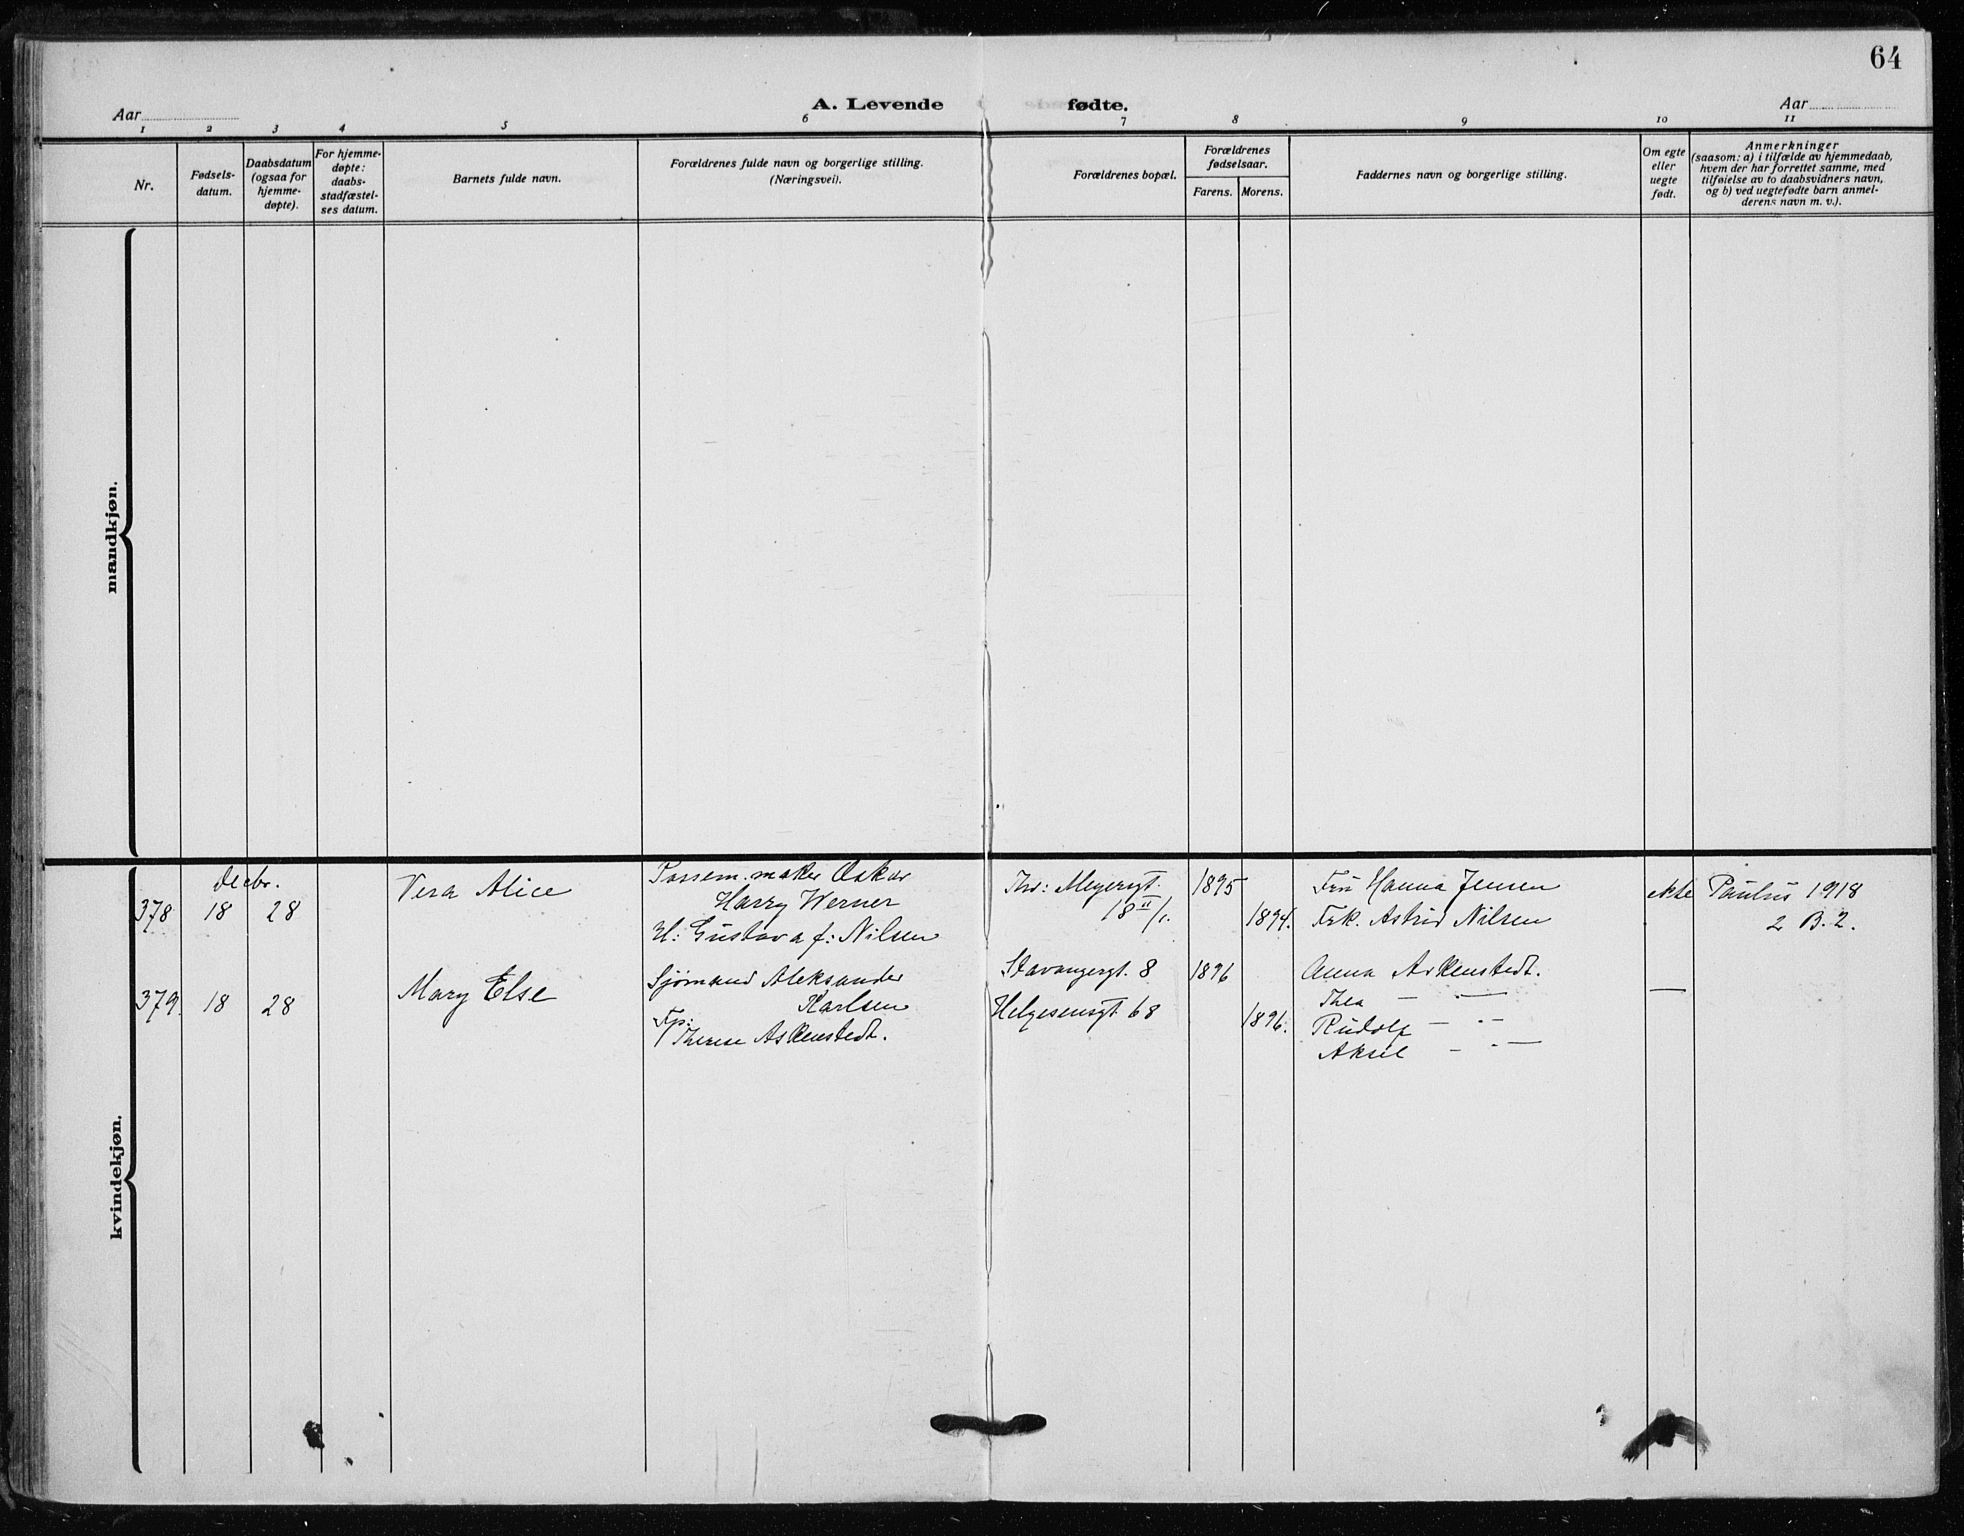 64
A. Levende fødte.
Aar
Aar
1 2 3 4 5 6 7 8 9 10 11
Nr.
Fødsels-
datum.
Daabsdatum
(ogsaa for
hjemme-
døpte).
For hjemme-
døpte:
daabs-
stadfæstel-
ses datum.
Barnets fulde navn.
Forældrenes fulde navn og borgerlige stilling.
(Næringsvei).
Forældrenes bopæl.
Forældrenes
fødselsaar.
Farens. Morens.
Faddernes navn og borgerlige stilling.
Om egte
eller
uegte
født.
Anmerkninger
(saasom: a) i tilfælde av hjemmedaab,
hvem der har forrettet samme, med
tilføielse av to daabsvidners navn,
og b) ved uegtefødte barn anmel-
derens navn m. v.).
mandkjøn.
kvindekjøn.
Decbr.
378 18 28
Vera Alice
maker Oskar
Harry Werner
H: Gustava f: Nilsen
Thv: Meyersgt.
18 II/1.
1895
1894.
Fru Hanna Jensen
Frk. Astrid Nilsen
ekte
Paulus 1918
2 B. 2.
379. 18 28
Mary Else
Sjömand Aleksander
Karlsen
Fp:
Therese Askenstedt.
Stavangergt. 8
Helgesensgt 68
1896
1896.
Anna Askenstedt.
Thea — " —
Rudolf — " —
Aksel — " —
—